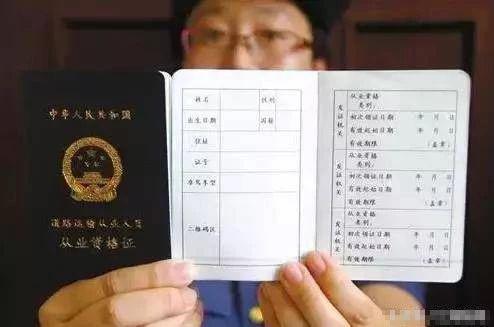 中华人民共和国
道路运输从业人员
从业资格证
姓名 性别
出生日期 国籍
住址
证号
准驾车型
二维码区
发证机关
从业资格
类别：
初次领证日期 年 月 日
有效起始日期 年 月 日
有效期限 （盖章）
发证机关
从业资格
类别：
初次领证日期 年 月 日
有效起始日期 年 月 日
有效期限 （盖章）
发证机关
从业资格
类别：
初次领证日期 年 月 日
有效起始日期 年 月 日
有效期限 （盖章）